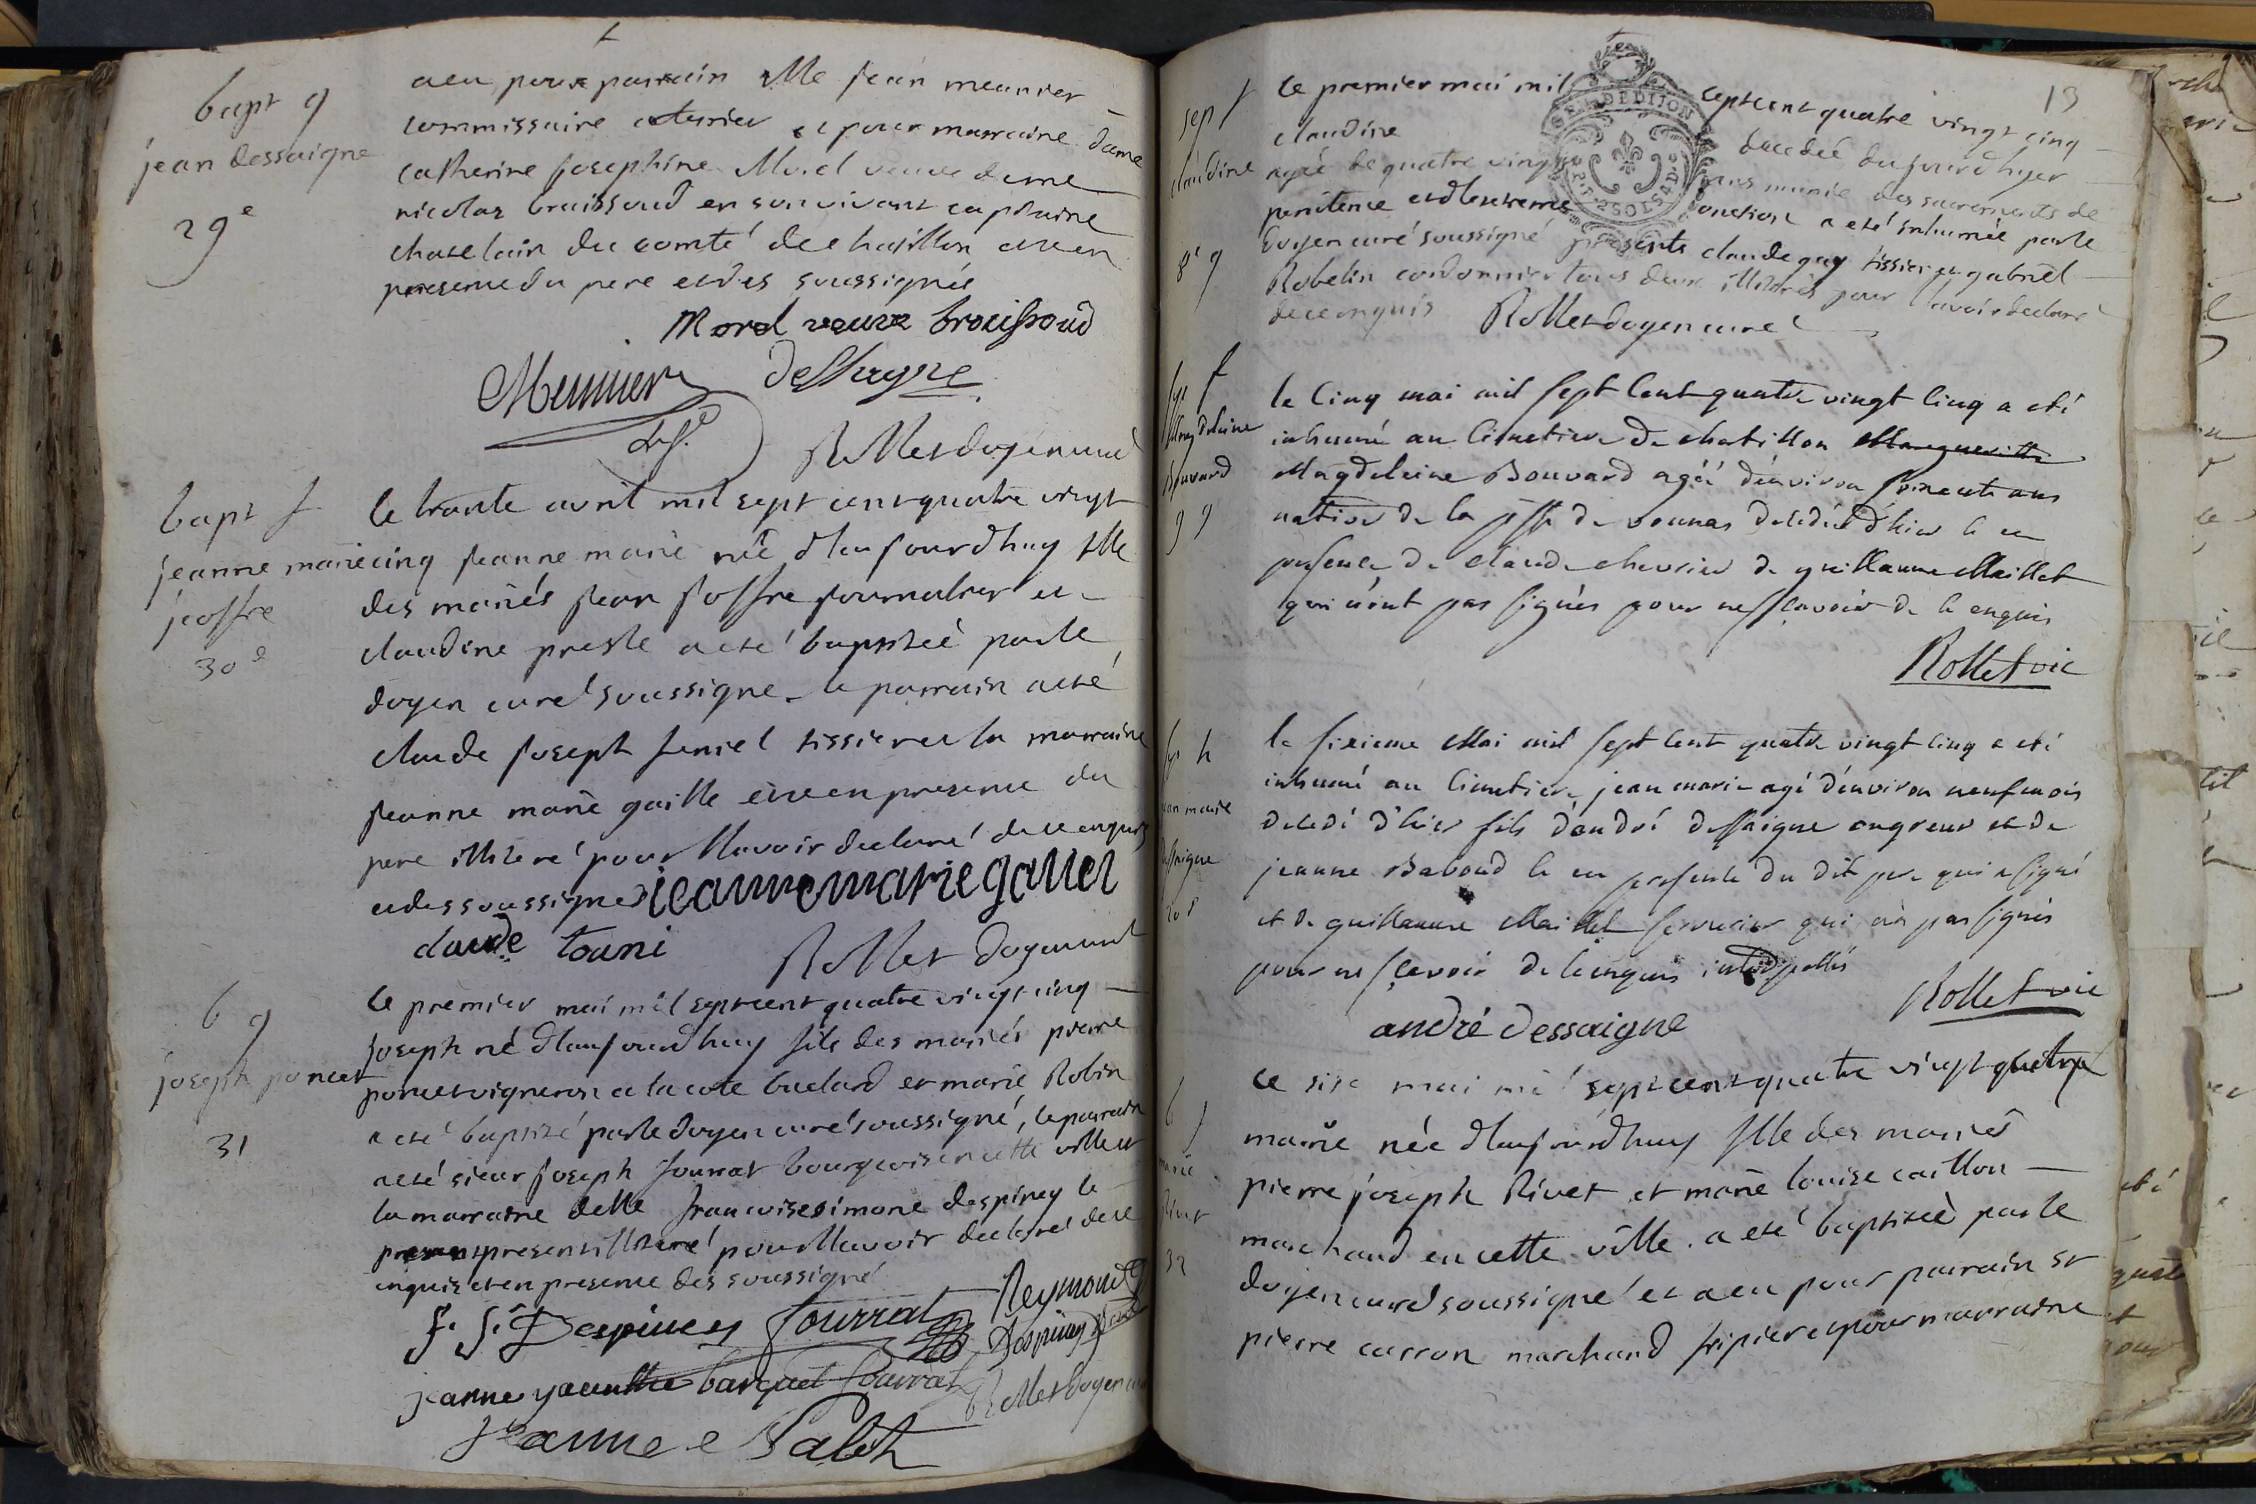 bapt g
jean dessaigne
29e
a eu pour parrain Me jean meunier
commissaire a terrier et pour marraine dame
catherine josephine Morel veuve de me
nicolas braissoud en son vivant capitaine
chatelain du comté de chatillon
presence du pere et des soussignés
Morel veuve broissoud
Meunier dessaigne
Rollet doyen curé
bapt f
jeanne marie
joffre
30e
le trante avril mil sept cent quatre vingt
cinq jeanne marie née d'aujourdhuy fille
des mariés jean joffre journalier et
claudine presle a eté baptisée par le
doyen curé soussigné le parrain a eté
claude joseph tissier et la marraine
jeanne marie gaille en presence du
pere illiteré pour l'avoir declaré de ce enquis
et des soussignés jeanne marie gallet
claude touni Rollet doyen curé
b g
joseph poncet
31
le premier mai mil sept cent quatre vingt cinq
joseph né d'aujourdhuy fils des mariés pierre
poncet vigneron a la cote buclard et marie Robin
a eté baptisé par le doyen curé soussigné, le parrain
a eté sieur joseph fourrat bourgeois en cette ville et
la marraine delle francoise simone despiney le
present illiteré pour l'avoir declaré de ce
enquis et en presence des soussigné
f. s. Despiney fourrat Reymond
Despiney
jeanne yacinthe barquet fourrat Rollet doyen curé
jeanne Palot
13
sep f
claudine
8e g
Le premier mai mil sept cent quatre vingt cinq
claudine decedée du jourdhyer
agée de quatre vingt ans munie des sacrements de
penitence et d'extreme onction a eté inhumée par le
doyen curé soussigné presents claude guy tissier et gabriel
Robelin cordonnier tous deux illiterés pour l'avoir declaré
de ce enquis Rollet doyen curé
sep f
Magdelaine
Bouvard
9 g
le Cinq mai mil sept Cent quatre vingt Cinq a eté
inhumé au Cimetiere de chatillon Marguerite
Magdeleine Bouvard agéé d'environ soixante ans
native de la psse de vonnas decedée d'hier le en
presence de claude chevrier de guillaume Maillet
qui n'ont pas signés pour ne sçavoir de ce enquis
Rollet vic
sep h
jean marie
dessaigne
10e
le sixieme Mai mil sept Cent quatre vingt Cinq a eté
inhumé au Cimetiere jean marie agé d'environ neuf mois
decedé d'hier fils d'andré dessaigne et de
jeanne Baboud le en presence du dit pere qui a signé
et de guillaume Maillet serrurier qui n'a pas signés
pour ne sçavoir de ce enquis interpellés
Rollet vic
andré dessaigne
b f
marie
Rivet
32
Le six mai mil sept cent quatre vingt quatre
marie née d'aujourdhuy fille des mariés
pierre joseph Rivet et marie louise caillon
marchand en cette ville a eté baptisée par le
doyen curé soussigné et a eu pour parrain sr
pierre carron marchand fripier et pour marraine